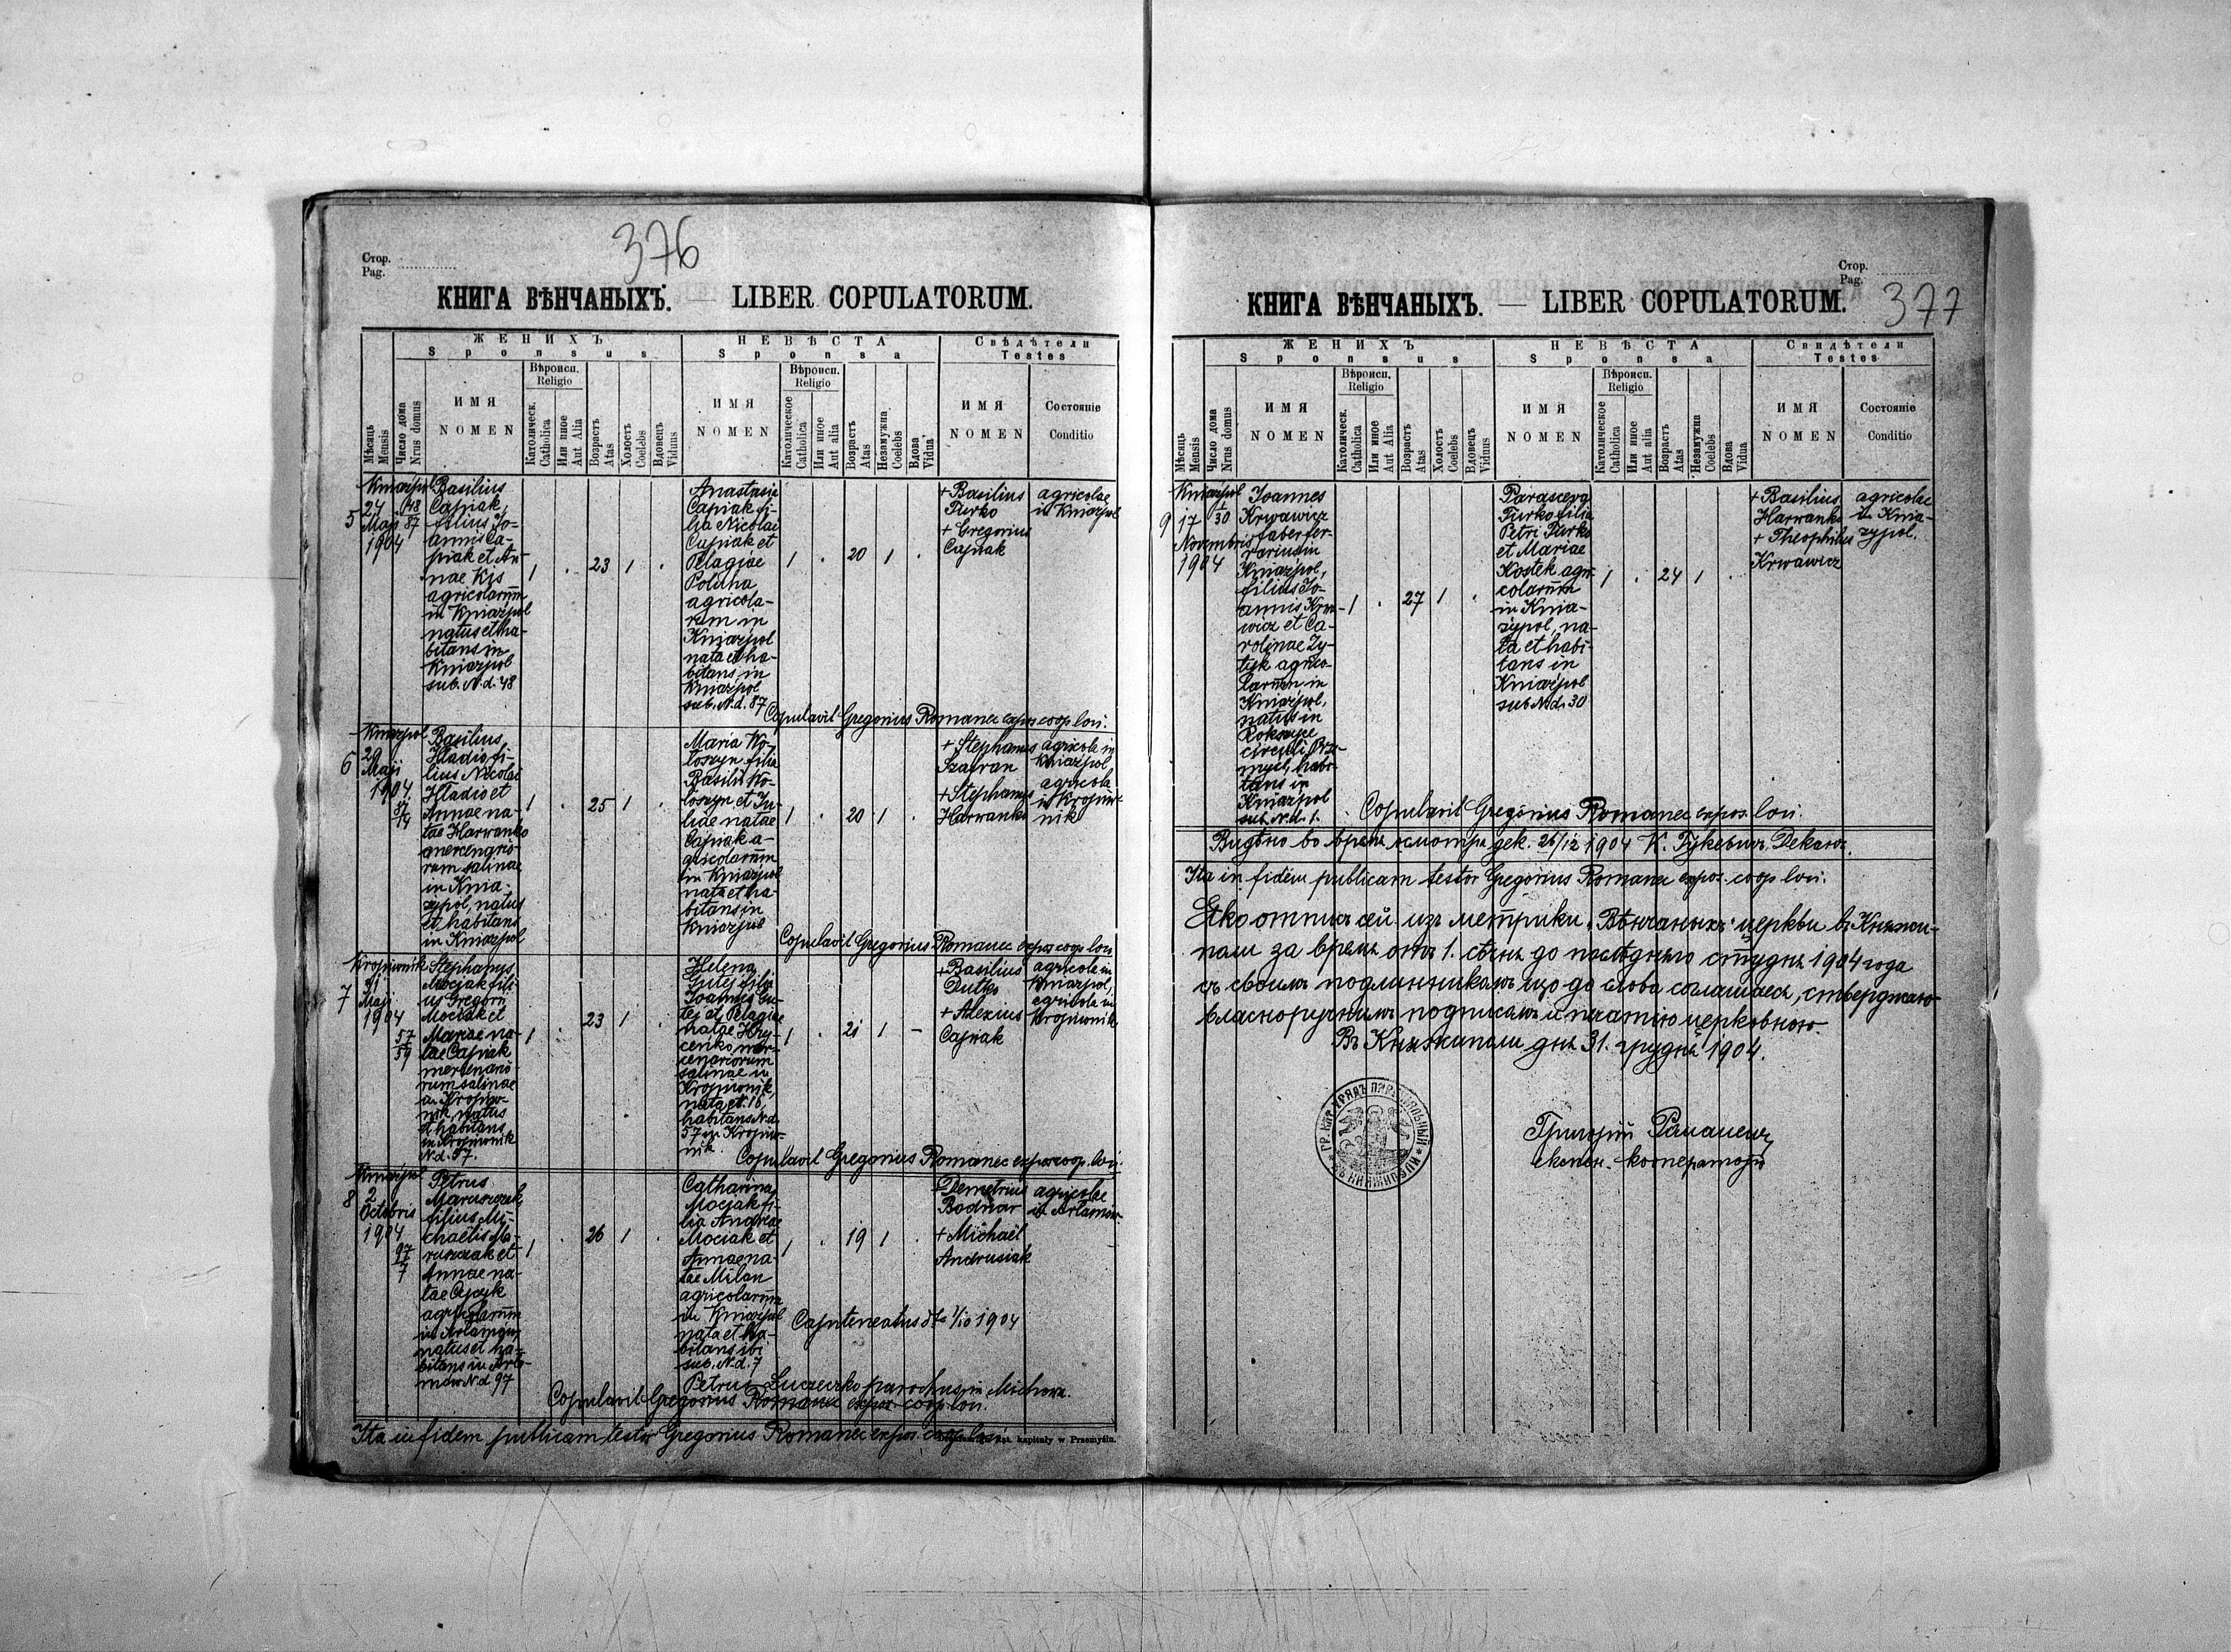 376
Стор.
Pag.
КНИГА ВѢНЧАНЫХЪ. — LIBER COPULATORUM.
ЖЕНИХЪ
Sponsus
НЕВѢСТА
Sponsa
Свѣдѣтели
Testes
Мѣсяць
Mensis
Число дома
Nrus domus
ИМЯ
NOMEN
Вѣроисп.
Religio
Католическ.
Catholica
Или иное
Aut Alia
Возрастъ
Atas
Холостъ
Coelebs
Вдовецъ
Viduus
ИМЯ
NOMEN
Вѣроисп.
Religio
Католическое
Catholica
Или иное
Aut alia
Возрастъ
Atas
Незамужна
Coelebs
Вдова
Vidua
ИМЯ
NOMEN
Состояніе
Conditio
5
Kniażpol
24
Maji
1904
48
87
Basilius
Capiak,
filius Jo-
annis Ca-
piak et An-
nae Kis
agricolarum
in Kniażpol
natus et ha-
bitans in
Kniażpol
sub. N.d. 48
1 . 23 1 .
Anastasia
Capiak fi-
lia Nicolai
Capiak et
Pelagiae
agricola-
rum in
Kniażpol
nata et ha-
bitans in
Kniażpol
sub. N.d. 87
1 . 20 1 .
+ Basilius
Turko
+ Gregorius
Capiak
agricolae
in Kniażpol
Copulavit Gregorius Romanec expos. coop. loci.
6
Kniażpol
29
Maji
1904
Basilius
Hladio fi-
lius Nicolai
Hladio et
Annae na-
tae Harwanko
mercenario-
rum salinae
in Knia-
żypol, natus
et habitans
in Kniażpol
1 . 25 1 .
Maria Ko-
łoszyn filia
Basilii Ko-
łoszyn et Ju-
liae natae
Capiak a-
gricolarum
in Kniażpol
nata et ha-
bitans in
Kniażpol
1 . 20 1 .
+ Stephanus
Szafran
+ Stephanus
Harwanko
agricola in
Kniażpol
agricola
in Kropiw-
nik
Copulavit Gregorius Romanec expos. coop. loci
7
Kropiwnik
31
Maji
1904
57
59
Stephanus
Mociak fili-
us Gregorii
Mociak et
Mariae na-
tae Capiak
mercenario-
rum salinae
in Kropiw-
nik, natus
et habitans
in Kropiwnik
N.d. 57.
1 . 23 1 .
Helena
Gutej filia
Joannis Gu-
tej et Pelagiae
natae Hry-
cenko mer-
cenariorum
salinae in
Kropiwnik,
nata N. 16,
habitans N.d.
57 in Kropiw-
nik.
1 . 21 1 –
+ Basilius
Dutko
+ Alexius
Capiak
agricola in
Kniażpol,
agricola in
Kropiwnik
Copulavit Gregorius Romanec expos. coop. loci.
8
Kniażpol
2
Octobris
1904
97
7
Petrus
Maruszczak
filius Mi-
chaëlis Ma-
ruszczak et
Annae na-
tae
agricolarum
in Arlamow
natus et ha-
bitans in Arla-
mow N.d. 97
1 . 26 1 .
Catharina
Mociak fi-
lia Andreae
Mociak et
Annae na-
tae Milan
agricolarum
in Kniażpol
nata et ha-
bitans ibi
sub. N.d. 7
1 . 19 1 .
+ Demetrius
Bodnar
+ Michaël
Andrusiak
agricolae
in Arlamow
1/10 1904
Petrus Łuczeczko parochus in
Copulavit Gregorius Romanec expos. coop. loci.
Ita in fidem publicam testor Gregorius Romanec expos. coop. loci
kapituły w Przemyślu.
Стор.
Pag.
377
КНИГА ВѢНЧАНЫХЪ. — LIBER COPULATORUM.
ЖЕНИХЪ
Sponsus
НЕВѢСТА
Sponsa
Свидѣтели
Testes
Мѣсяць
Mensis
Число дома
Nrus domus
ИМЯ
NOMEN
Вѣроисп.
Religio
Католическ.
Catholica
Или иное
Aut Alia
Возрастъ
Atas
Холостъ
Coelebs
Вдовецъ
Viduus
ИМЯ
NOMEN
Вѣроисп.
Religio
Католическое
Catholica
Или иное
Aut alia
Возрастъ
Atas
Незамужна
Coelebs
Вдова
Vidua
ИМЯ
NOMEN
Состояніе
Conditio
9
Kniażpol
17
Novembris
1904
1
30
Joannes
Krwawicz
faber fer-
rarius in
Kniażpol,
filius Jo-
annis Krwa-
wicz et Ca-
rolinae Zy-
tyk agrico-
larum in
Kniażpol,
natus in
Rokszyce
circuli Prze-
mysl, habi-
tans in
Kniażpol
sub. N.d. 1.
1 . 27 1 .
Parasceva
Turko filia
Petri Turko
et Mariae
Kostek agri-
colarum
in Knia-
żypol, na-
ta et habi-
tans in
Kniażpol
sub N.d. 30
1 . 24 1 .
+ Basilius
Harwanko
+ Theophilus
Krwawicz
agricolae
in Knia-
żypol.
Copulavit Gregorius Romanec expos. loci.
Видѣно во время осмотра дек. 26/12 1904 К. Декан.
Ita in fidem publicam testor Gregorius Romanec expos. coop. loci.
Яко отпись сей изъ метрики „Вѣнчаныхъ" церкви въ Княжи-
поли за время отъ 1. сѣчня до послѣдняго студня 1904 года
съ своимъ подлинникомъ що до слова соглашаеся, стверджаю
власноручнымъ подписомъ и печатію церковною.
Въ Княжиполи дня 31. грудня 1904.
ГР. КАТ. УРЯДЪ ПАРОХІАЛЬНЫЙ
Григорій Романецъ
експон. кооператоръ